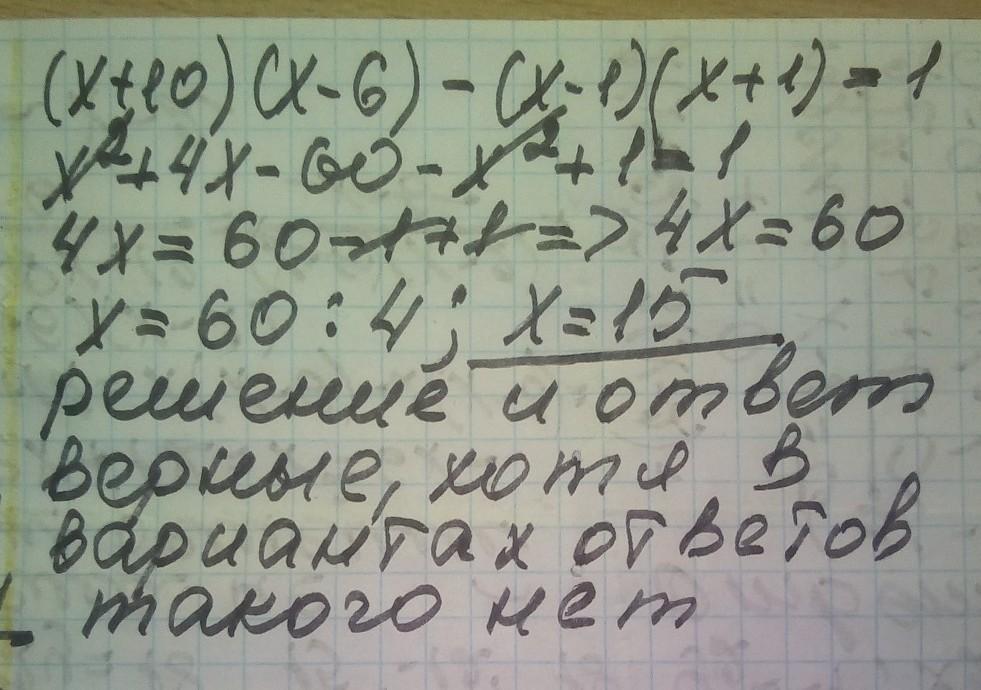 (x+10)(x-6)-(x-1)(x+1)=1
x²+4x-60-x²+1=1
4x=60-1+1=>4x=60
x=60:4; x=15
решение и ответ
верные, хотя в
вариантах ответов
такого нет